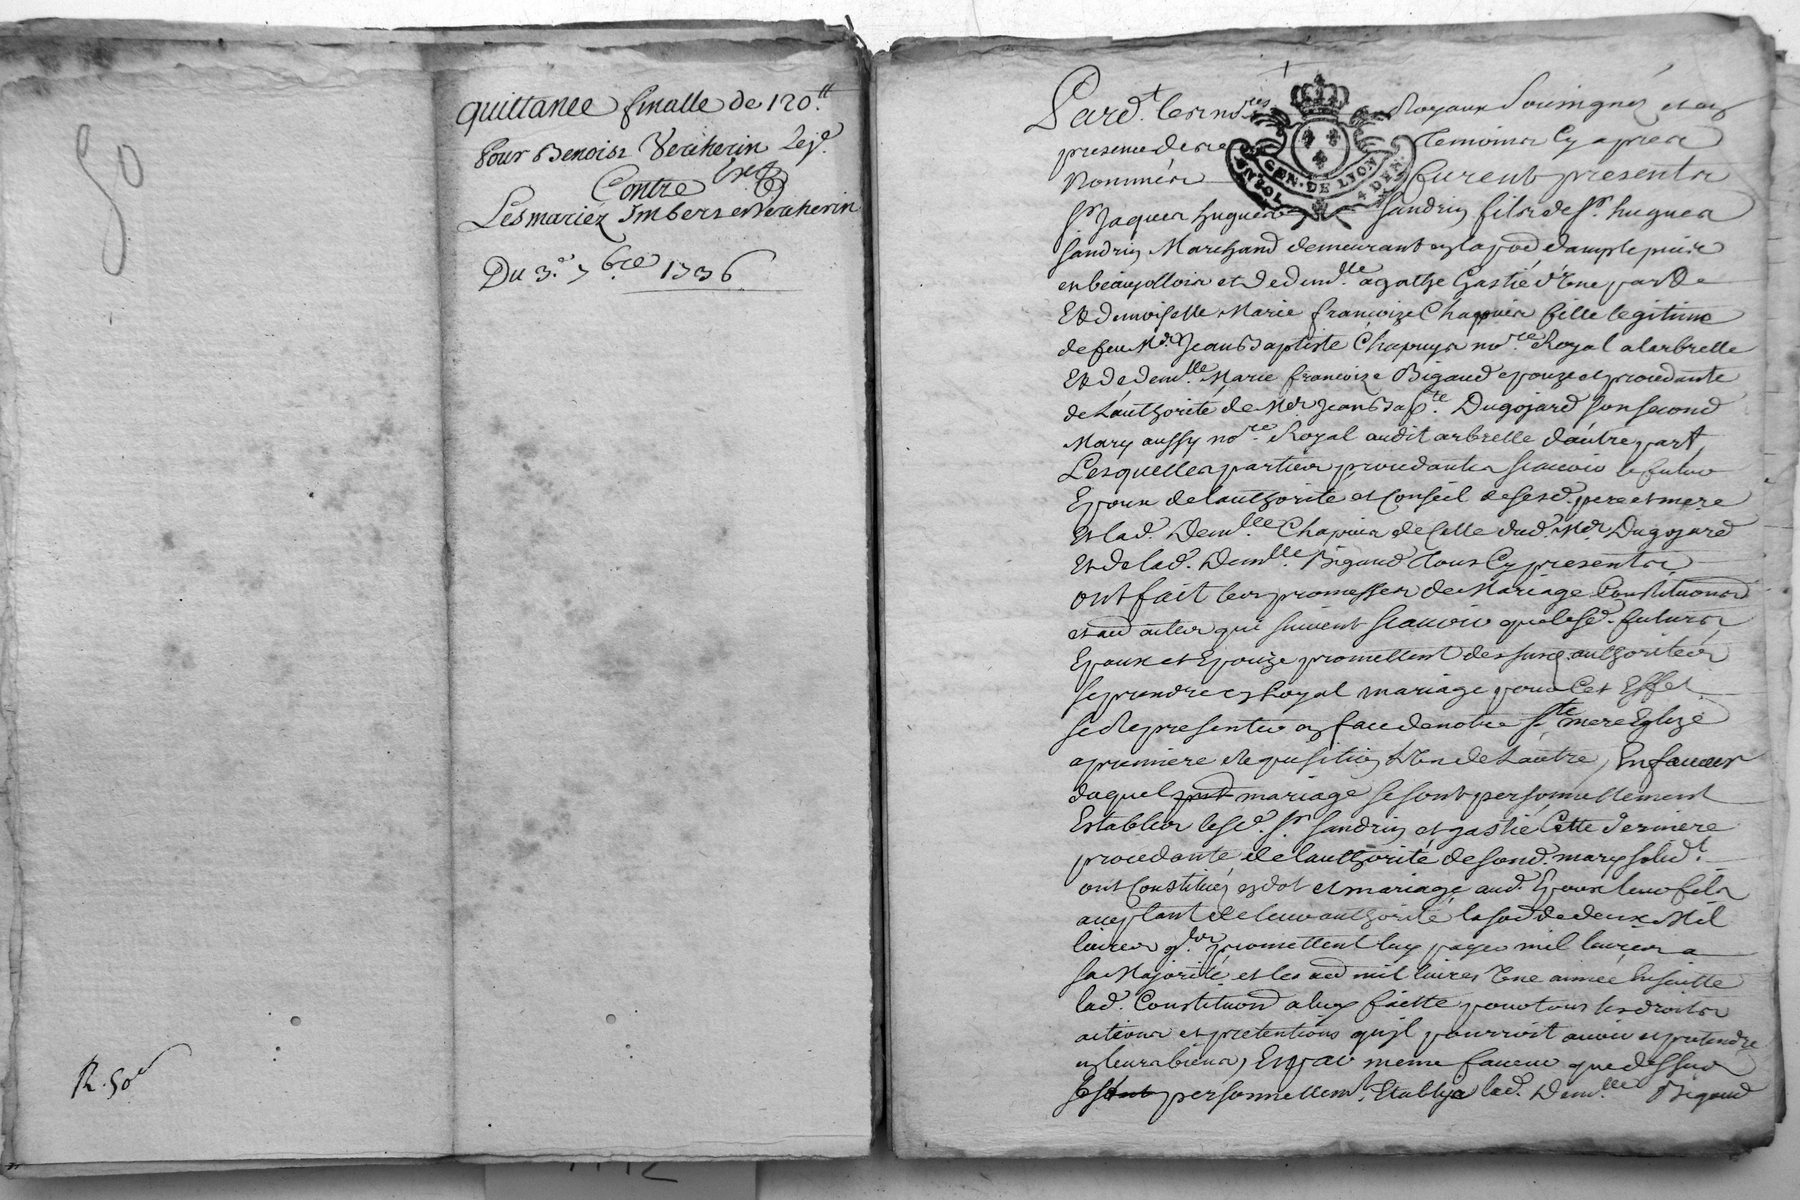 50
quittance finalle de 120.tt
Pour Benoist Vercherin Leg.e
Contre
Les mariez Imbert et Vercherin
Du 3.e 7.bre 1736
R. 50
Pard.t les no.res Royaux Soussignés et en
presence des temoins Cy apres
Nommés furent presents
GEN. DE LYON
4 DEN.
Sr. Jaques hugues Sandrin fils de Sr. hugues
Sandrin Marchand demeurant en la par.
en beaujollois et de dem.lle agathe Gastié d'Vne part
Et demoiselle Marie françoize Chapuis fille legitime
de feu Mr. Jean Baptiste Chapuys no.re Royal a larbrelle
Et de dem.lle Marie françoize Bigaud epouze et procedante
de L'authorité de Mr Jean Bap.te Dugojard son second
Mary aussy no.re Royal audit arbrelle d'autre part
Lesquelles parties procedantes scavoir le futur
Epoux de l'authorité et Conseil de sesd. pere et mere
Et lad. Dem.lle Chapuis de Celle dud. Mr. Dugojard
Et de lad. Dem.lle Bigaud tous Cy presents
ont fait les promesses de Mariage Constitutions
et autres qui suivent scavoir que lesd. futurs
Epoux et Epouze promettent desusd. authorites
se prendre en Loyal mariage pour Cet Effet
se Representer en face de notre S.te mere Eglize
a premiere Requisition L'Vn de L'autre, En faveur
duquel mariage se sont personnellement
Establis lesd. Sr. Sandrin et gastié Cette derniere
procedante de l'authorité de sond. mary solid.t
ont Constitués en dot et mariage aud. Epoux leur fils
acceptant de leur authorité la so.e de deux Mil
livres q. promettent luy payer mil livres a
sa Majorité et les au. mil livres Vne année Ensuitte
lad. Constitution a luy faitte pour tous les droits
actions et pretentions qu'jl pourroit avoir et pretendre
en leurs biens, En par meme faveur que dessus
personnellem.t Etablye lad. Dem.lle Bigaud